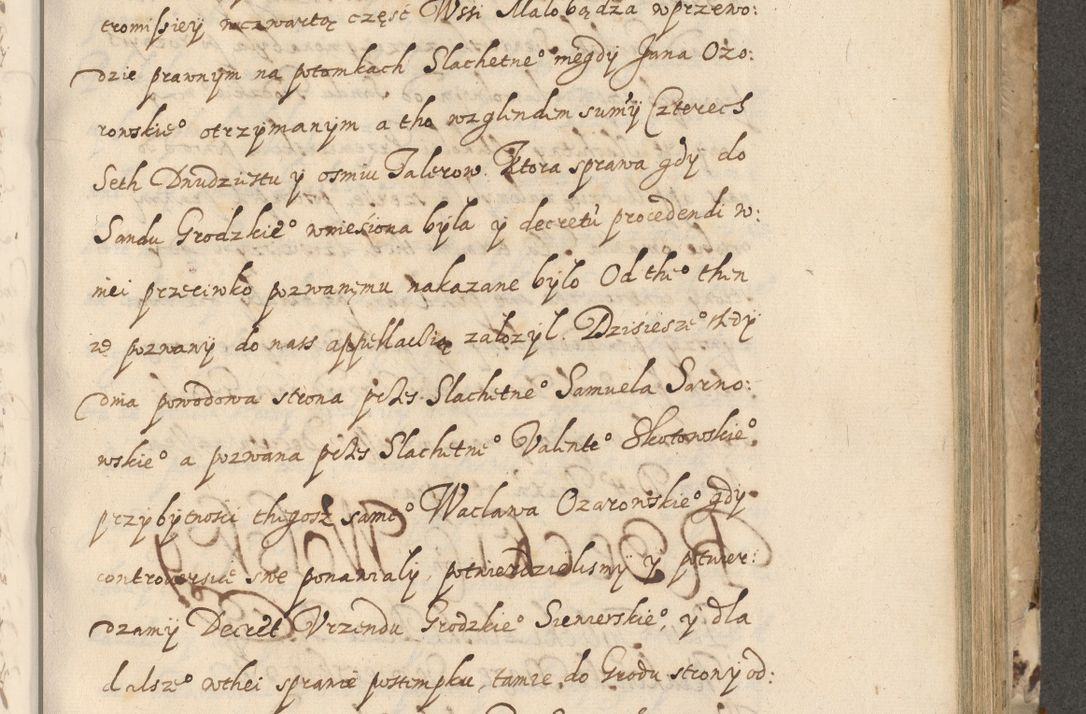 tromissiey w czwartą część Wssi Malobądza w przewo:
dzie prawnym na potomkach Slachetne° niegdy Jana Ozo:
rowskie° otrzymanym a tho wzglendem summy Czterech
Seth Dwudziestu y osmiu Talerow. Ktora sprawa gdy do
Sandu Grodzkie° wniesiona była y decretū procedendi w:
niei przeciwko pozwanemu nakazane było Od the° then
ze pozwany do nass appellacią założył. Dzisiesze° tedy
dnia powodowa strona przes Slachetne° Samuela Sarno:
wskie° a pozwana przes Slachetne° Valente° Skotowskie°
przybytnosci thegosz same° Waclawa Ozarowskie° gdy
controversie swe ponawiały, potwierdzielismy y potwier:
dzamy Decret Vrzendu Grodzkie° Siewierskie°, y dla
dalsze° wthei sprawie postempku, tamze do Grodu strony od: